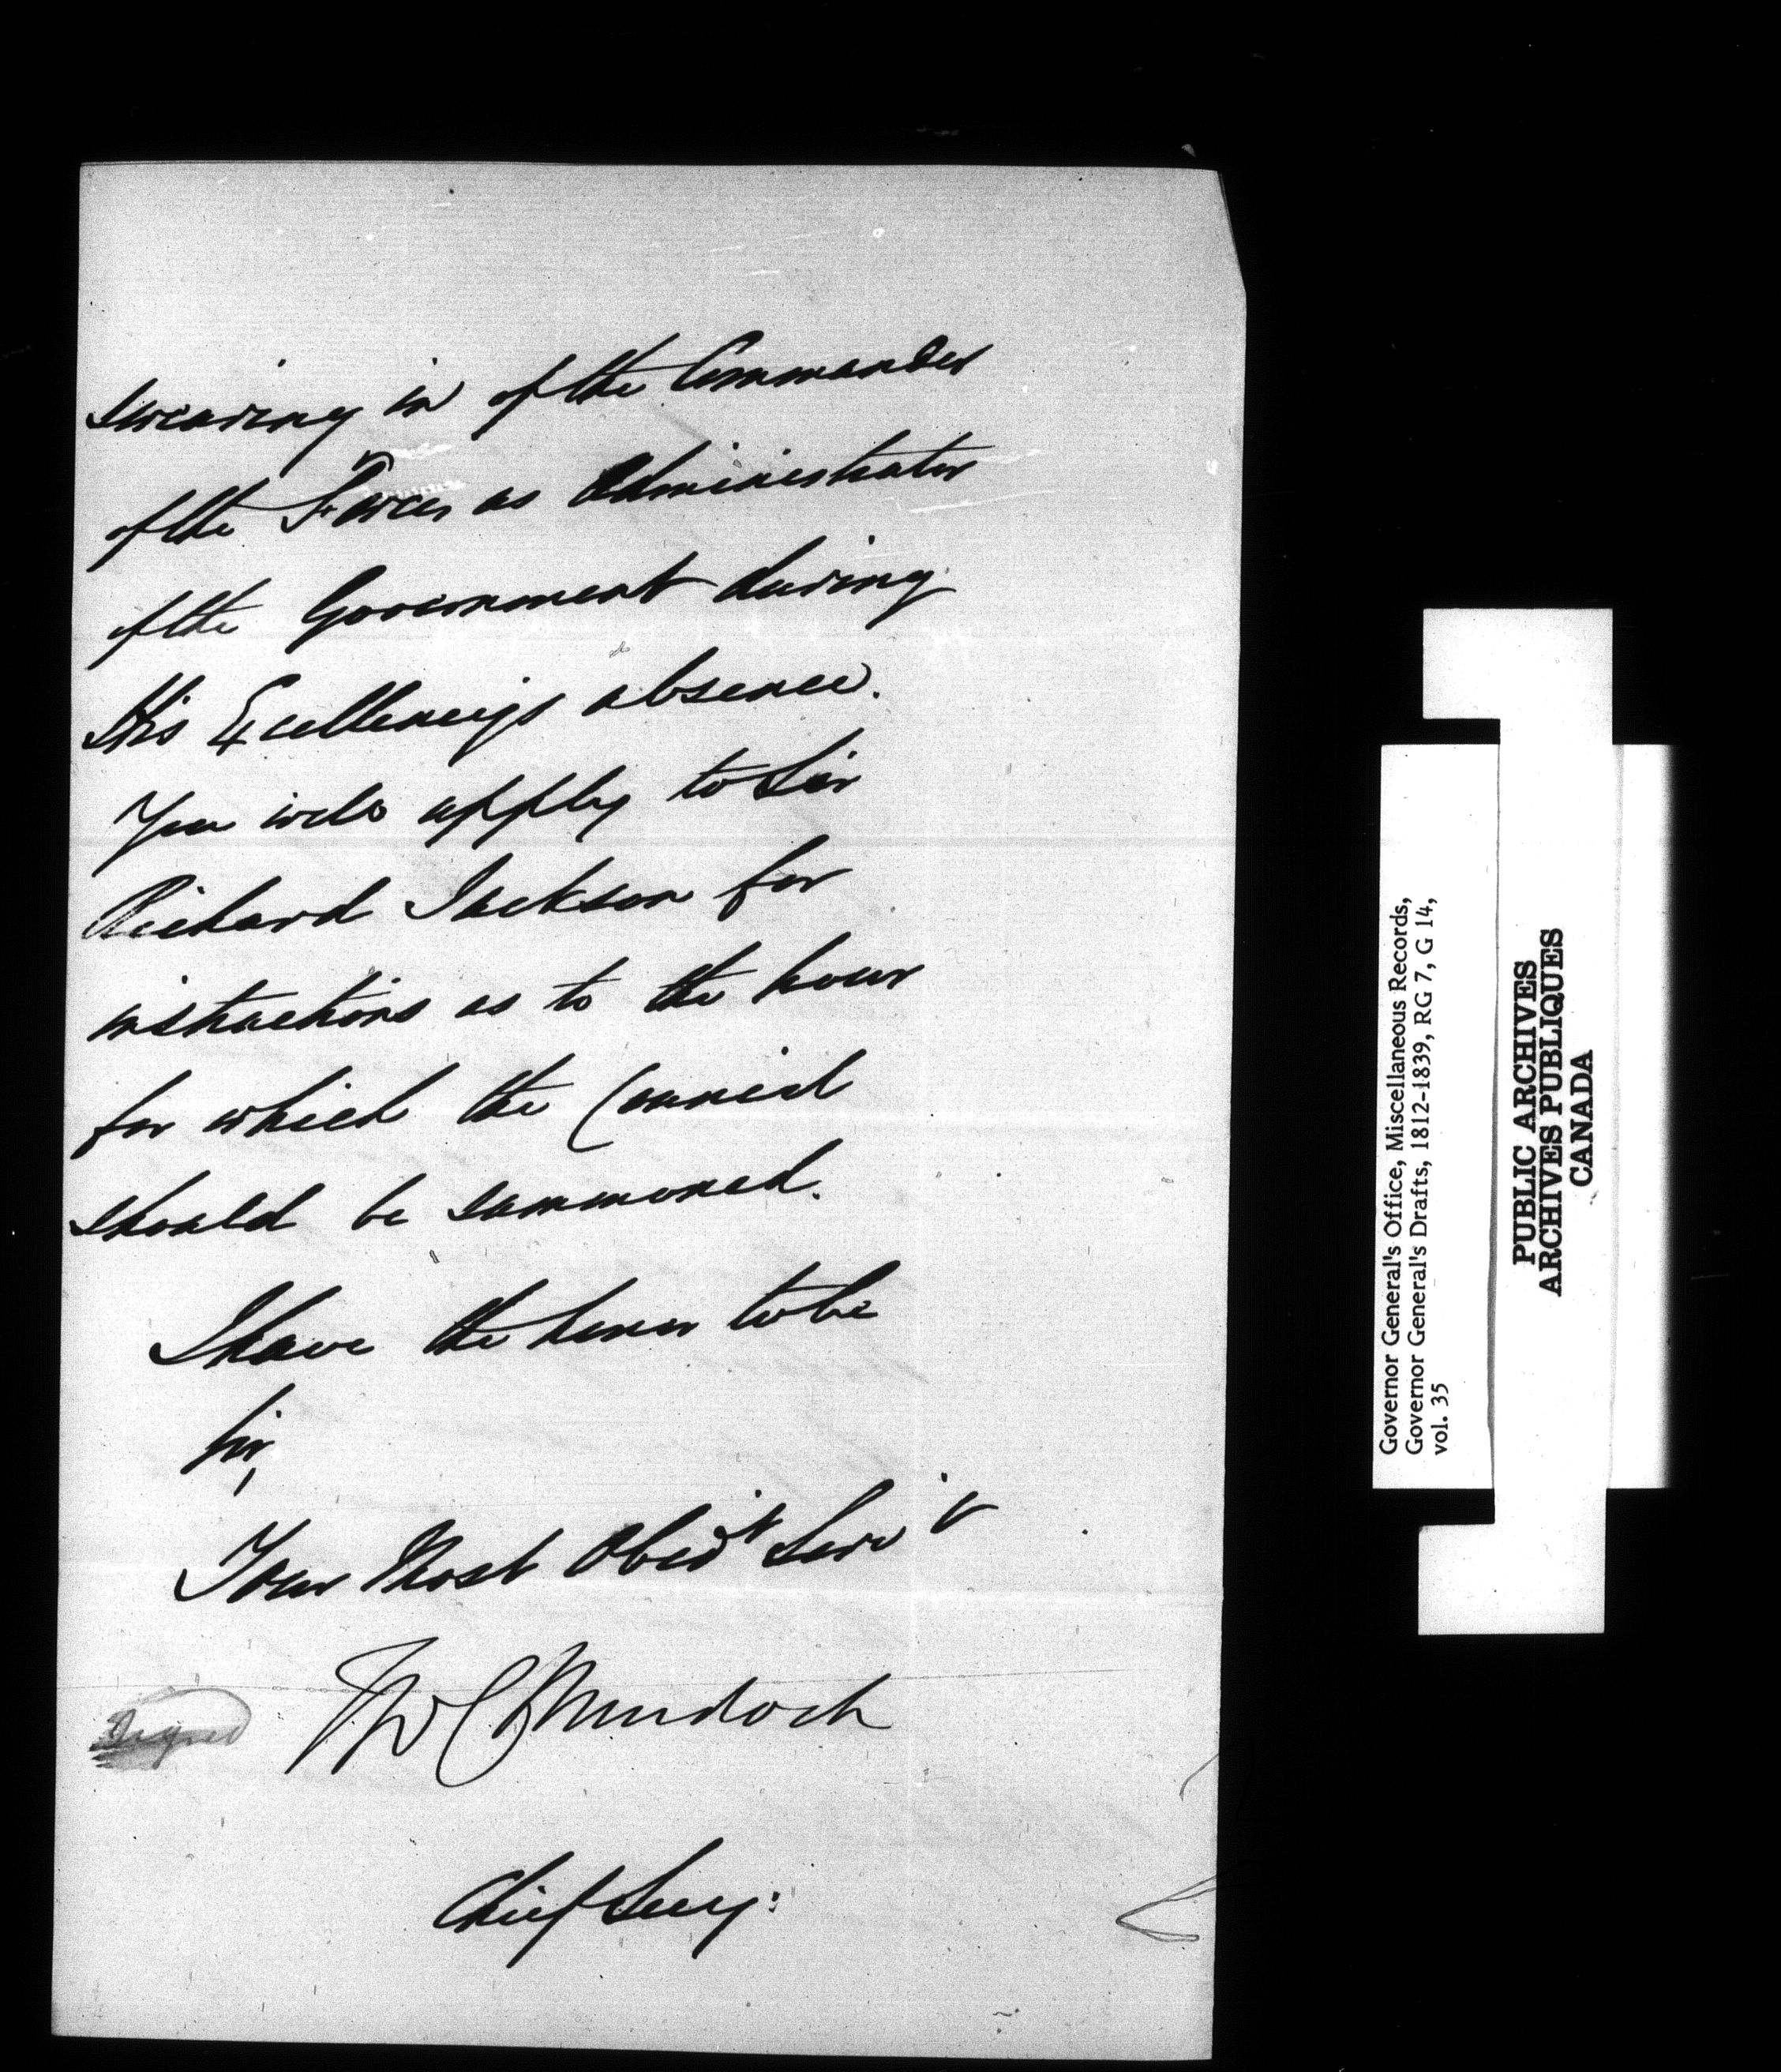 swearing in of the Commander
of the Forces as Administrator
of the Government during
His Excellency's absence.
You will apply to Sir
Richard Jackson for
instructions as to the hour
for which the Council
should be summoned.
I have the honor to be
Sir,
Your Most Obed't Serv't
Signed TWC Murdoch
Chief Secy:
Governor General's Office, Miscellaneous Records,
Governor General's Drafts, 1812-1839, RG 7, G 14,
vol. 35
PUBLIC ARCHIVES
ARCHIVES PUBLIQUES
CANADA